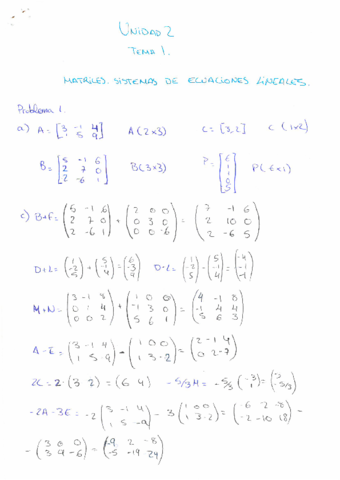 UNIDAD 2
TEMA 1.
MATRICES. SISTEMAS DE ECUACIONES LINEALES.
Problema 1.
a) A = [3 -1 4; 1 5 9] A(2x3) C = [3,2] C (1x2)
B = [5 -1 6; 2 7 0; 2 -6 1] B(3x3) P = [6; 1; 1; 0; 5] P(6x1)
c) B+F = (5 -1 6; 2 7 0; 2 -6 1) + (2 0 0; 0 3 0; 0 0 -6) = (7 -1 6; 2 10 0; 2 -6 5)
D+L = (1; -2; 5) + (5; -1; 4) = (6; -3; 9) D-L = (1; -2; 5) - (5; -1; 4) = (-4; -1; -1)
M+N = (3 -1 3; 0 1 4; 0 0 2) + (1 0 0; -1 3 0; 5 6 1) = (4 -1 8; -1 4 4; 5 6 3)
A-E = (3 -1 4; 1 5 -9) - (1 0 0; 1 3 -2) = (2 -1 4; 0 2 -7)
2C = 2·(3 2) = (6 4) -5/3 H = -5/3 (-3; 1) = (5; -5/3)
-2A-3E = -2 (3 -1 4; 1 5 -9) - 3 (1 0 0; 1 3 -2) = (-6 2 -8; -2 -10 18) -
- (3 0 0; 3 9 -6) = (-9 2 -8; -5 -19 24)